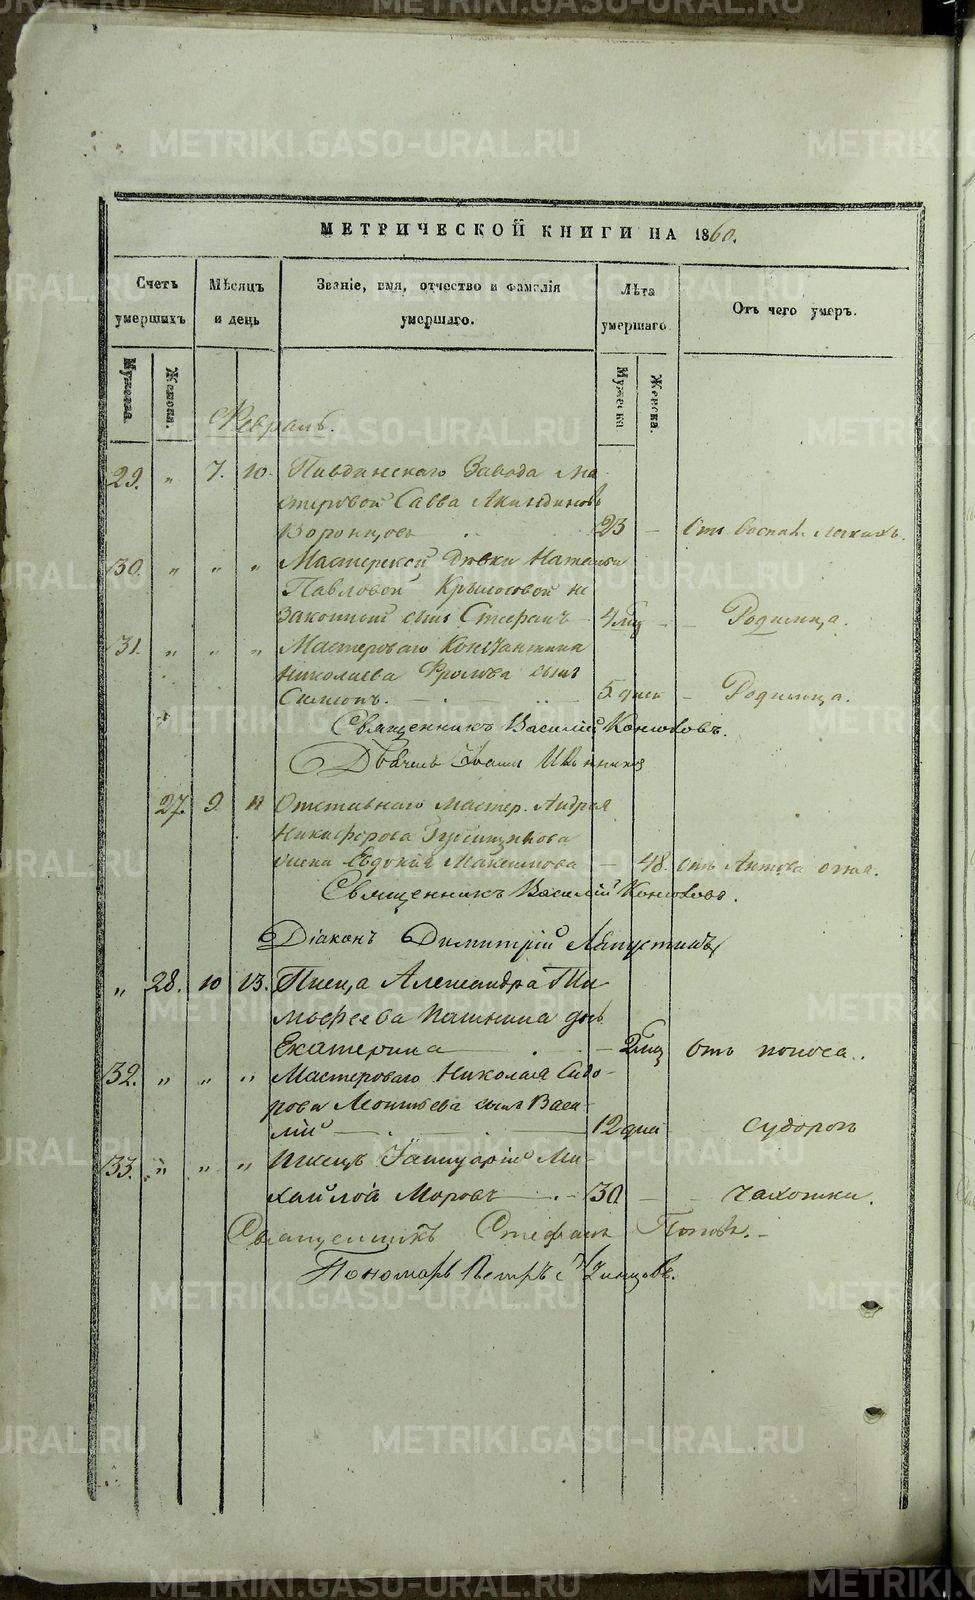 МЕТРИЧЕСКОЙ КНИГИ НА 1860.
Счетъ умершихъ
Мѣсяцъ и день
Званіе, имя, отчество и фамилія умершаго.
Лѣта умершаго.
Отъ чего умеръ.
Мужеска.
Женска.
Мужеска
Женска.
Февраль.
29. " 7. 10. Павдинскаго Завода Ма
стеровой Савва Акиндиновъ
Воронцовъ 23 — От воспал. легкихъ.
30. " " " Мастерской дѣвки Натальи
Павловой Крылосовой не
законный сынъ Стефанъ — 4 мц — Родимца.
31. " " " Мастероваго Константина
Николаева Фролова сынъ
Симеонъ. — 5 дней — Родимца.
Священникъ Василій Конюховъ.
Дьячекъ Иванъ
27. 9. 11 Отставнаго мастер. Андрея
Никифорова
жена Евдокия Максимова — 48. отъ Антова огня.
Священникъ Василій Конюховъ.
Діаконъ Димитрій Лапустинъ
" 28. 10 13. Писца Александра Ти
мофеева Пашнина дочь
Екатерина — 2 мц отъ поноса.
32. " " " Мастероваго Николая Сидо-
рова Леонтьева сынъ Васи-
лій — 12 дней судорог
33. " " " Писецъ Іаннуарій Ми-
хайловъ Моровъ — 30 — чахотки.
Священникъ Стефанъ Поповъ.
Пономарь Петръ
METRIKI.GASO-URAL.RU